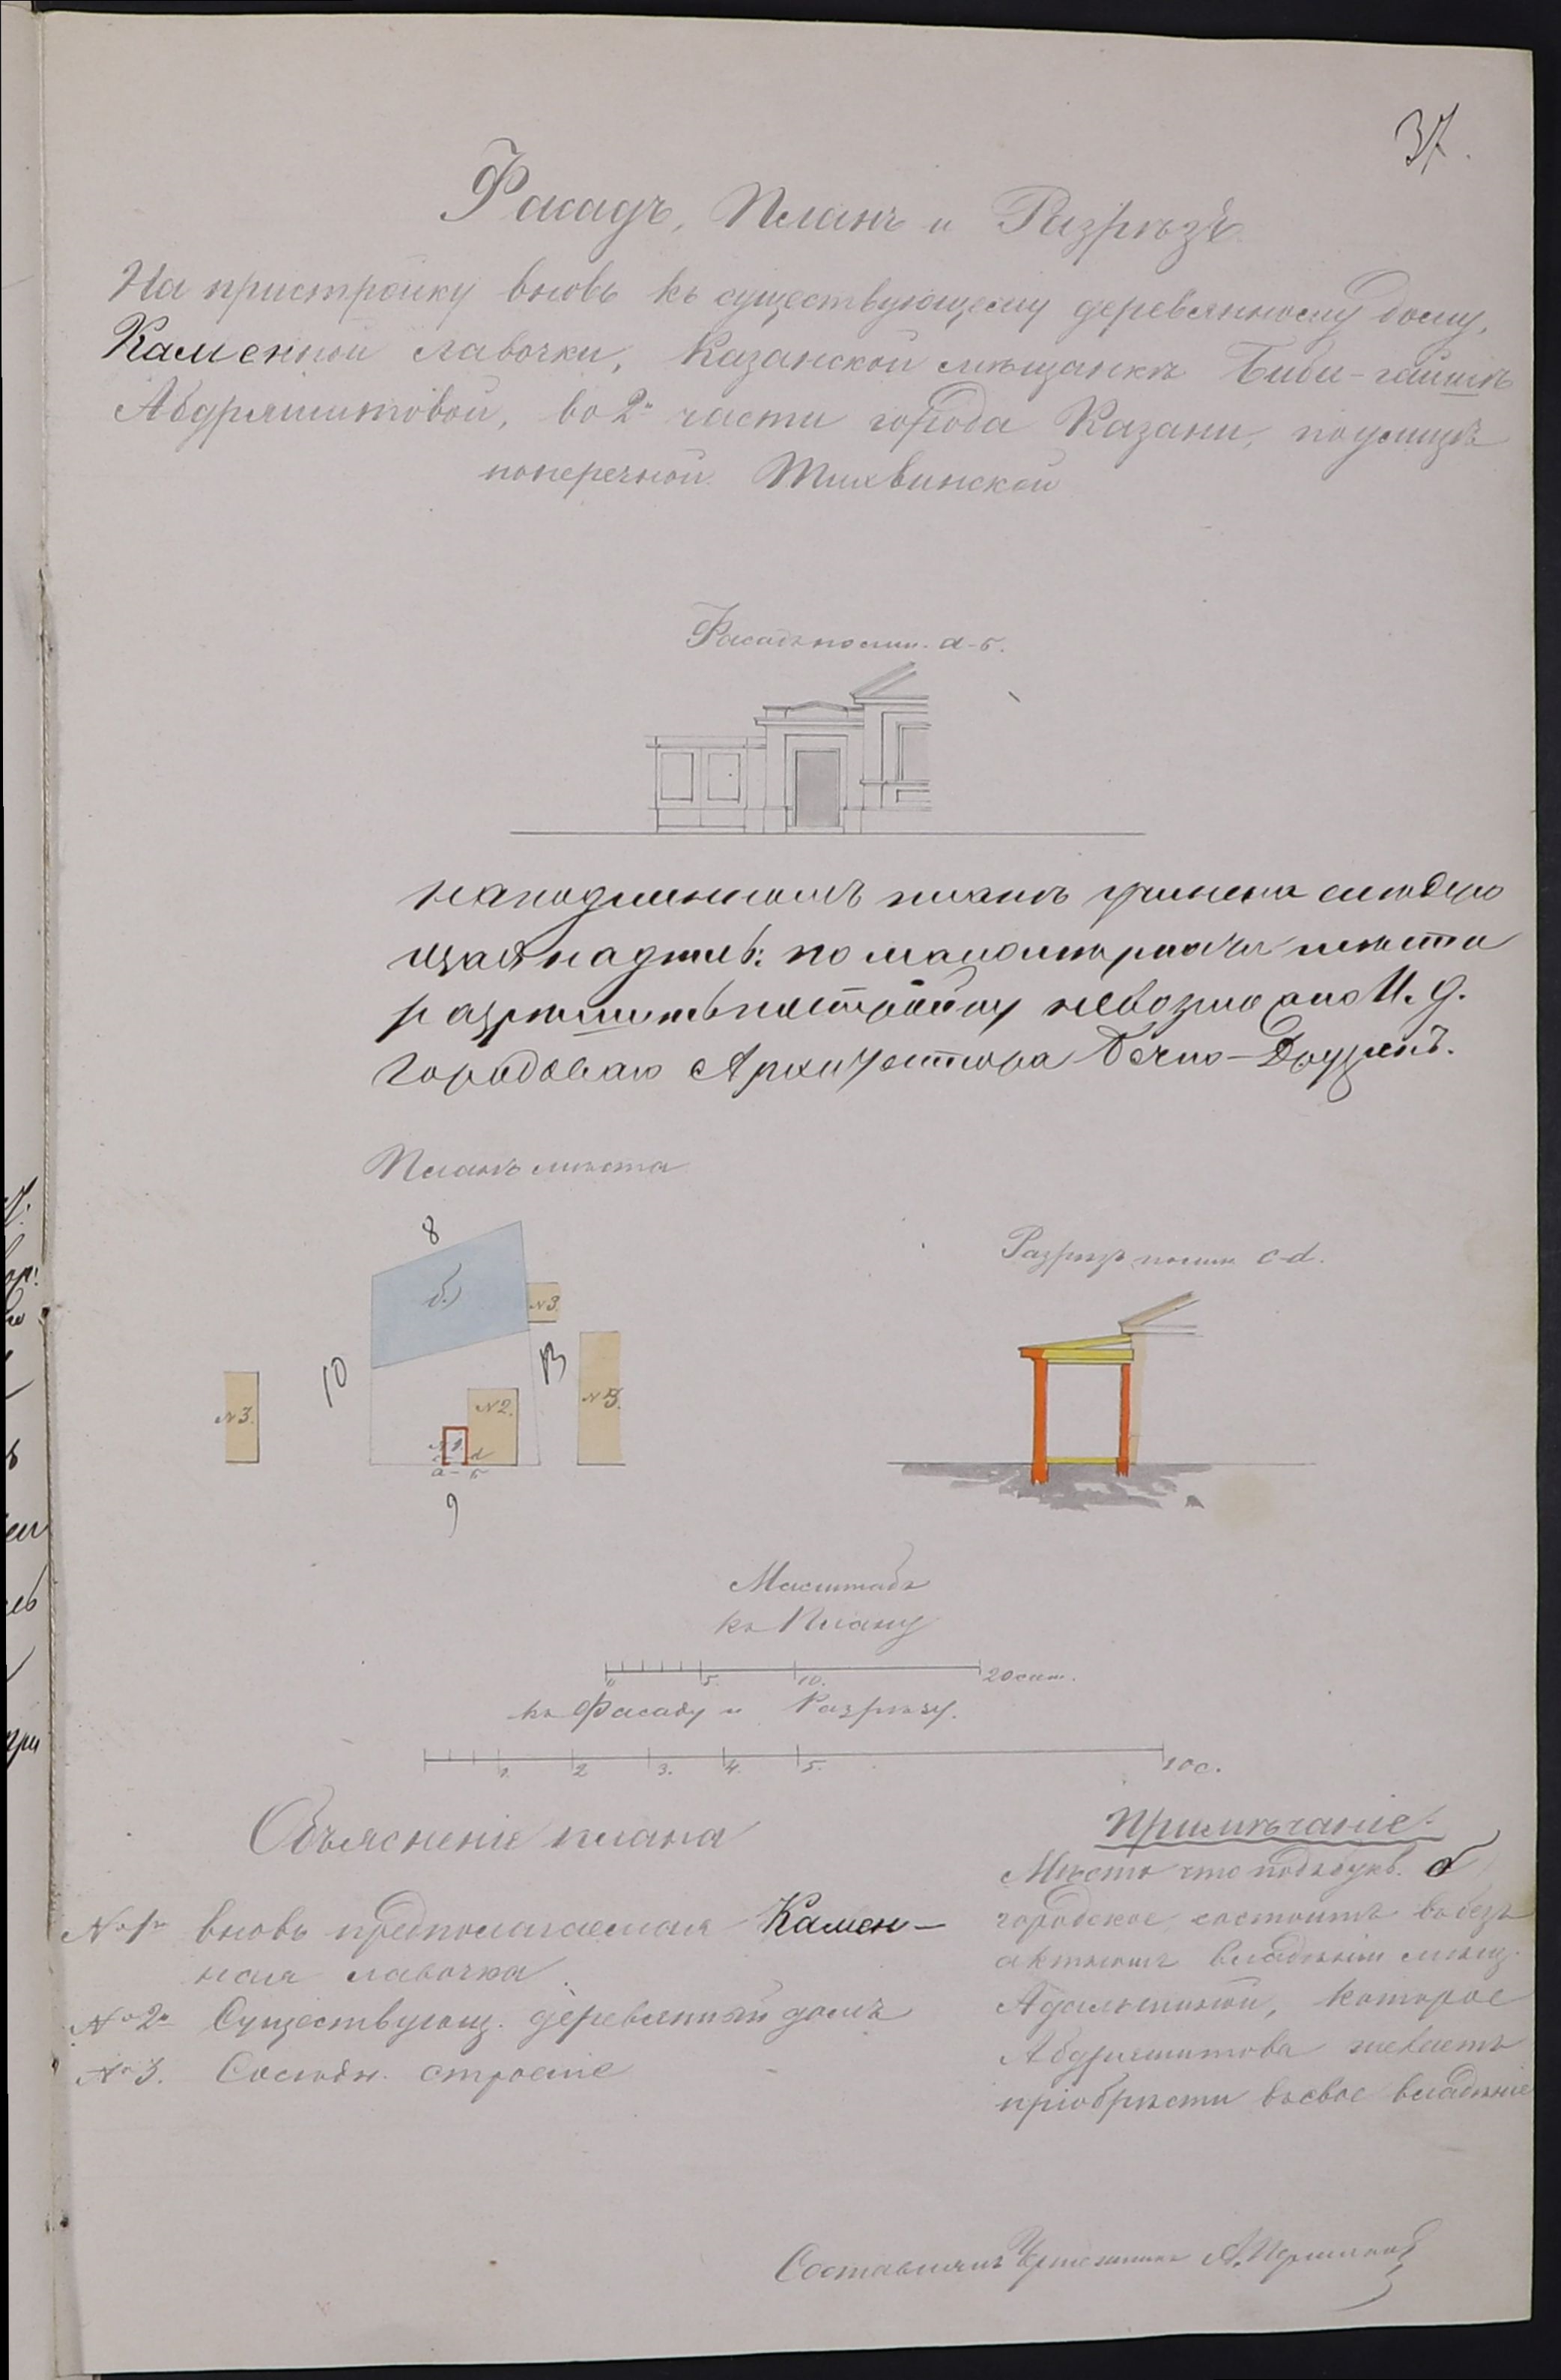 37.
Фасадъ, Планъ и Разрѣзъ
На пристройку вновь къ существующему деревянному дому,
Каменной лавочки, Казанской мѣщанкѣ Биби-гайшѣ
Абдряшитовой, во 2й части города Казани, по улицѣ
поперечной Тихвинской
Фасадъ по лин. а-б.
на подлинномъ планѣ учинена слѣдую
щая надпись: по маломѣрности мѣста
разрѣшить постройку невозможно И. д.
Городоваго Архитектора Бечко-Друзинъ.
Планъ мѣста
8
б)
N 3.
10
13
N 3.
N 3.
N 2.
N 1.
c d
а-б
9
Разрѣзъ по лин. c-d.
Масштабъ
къ Плану
0 5. 10. 20 саж.
къ Фасаду и Разрѣзу.
1. 2 3. 4. 5. 10 с.
Объясненіе плана
№ 1й вновь предполагаемая Камен-
ная лавочка
№ 2й Существующ. деревянный домъ
№ 3. Сосѣдн. строеніе
Примѣчаніе:
Мѣсто что подъ букв. б
городское, состоитъ въ безъ
актномъ владѣніи мѣщ.
которое
Абдряшитова желаетъ
пріобрѣсти въ свое владѣніе
Составлялъ Чертежникъ А.